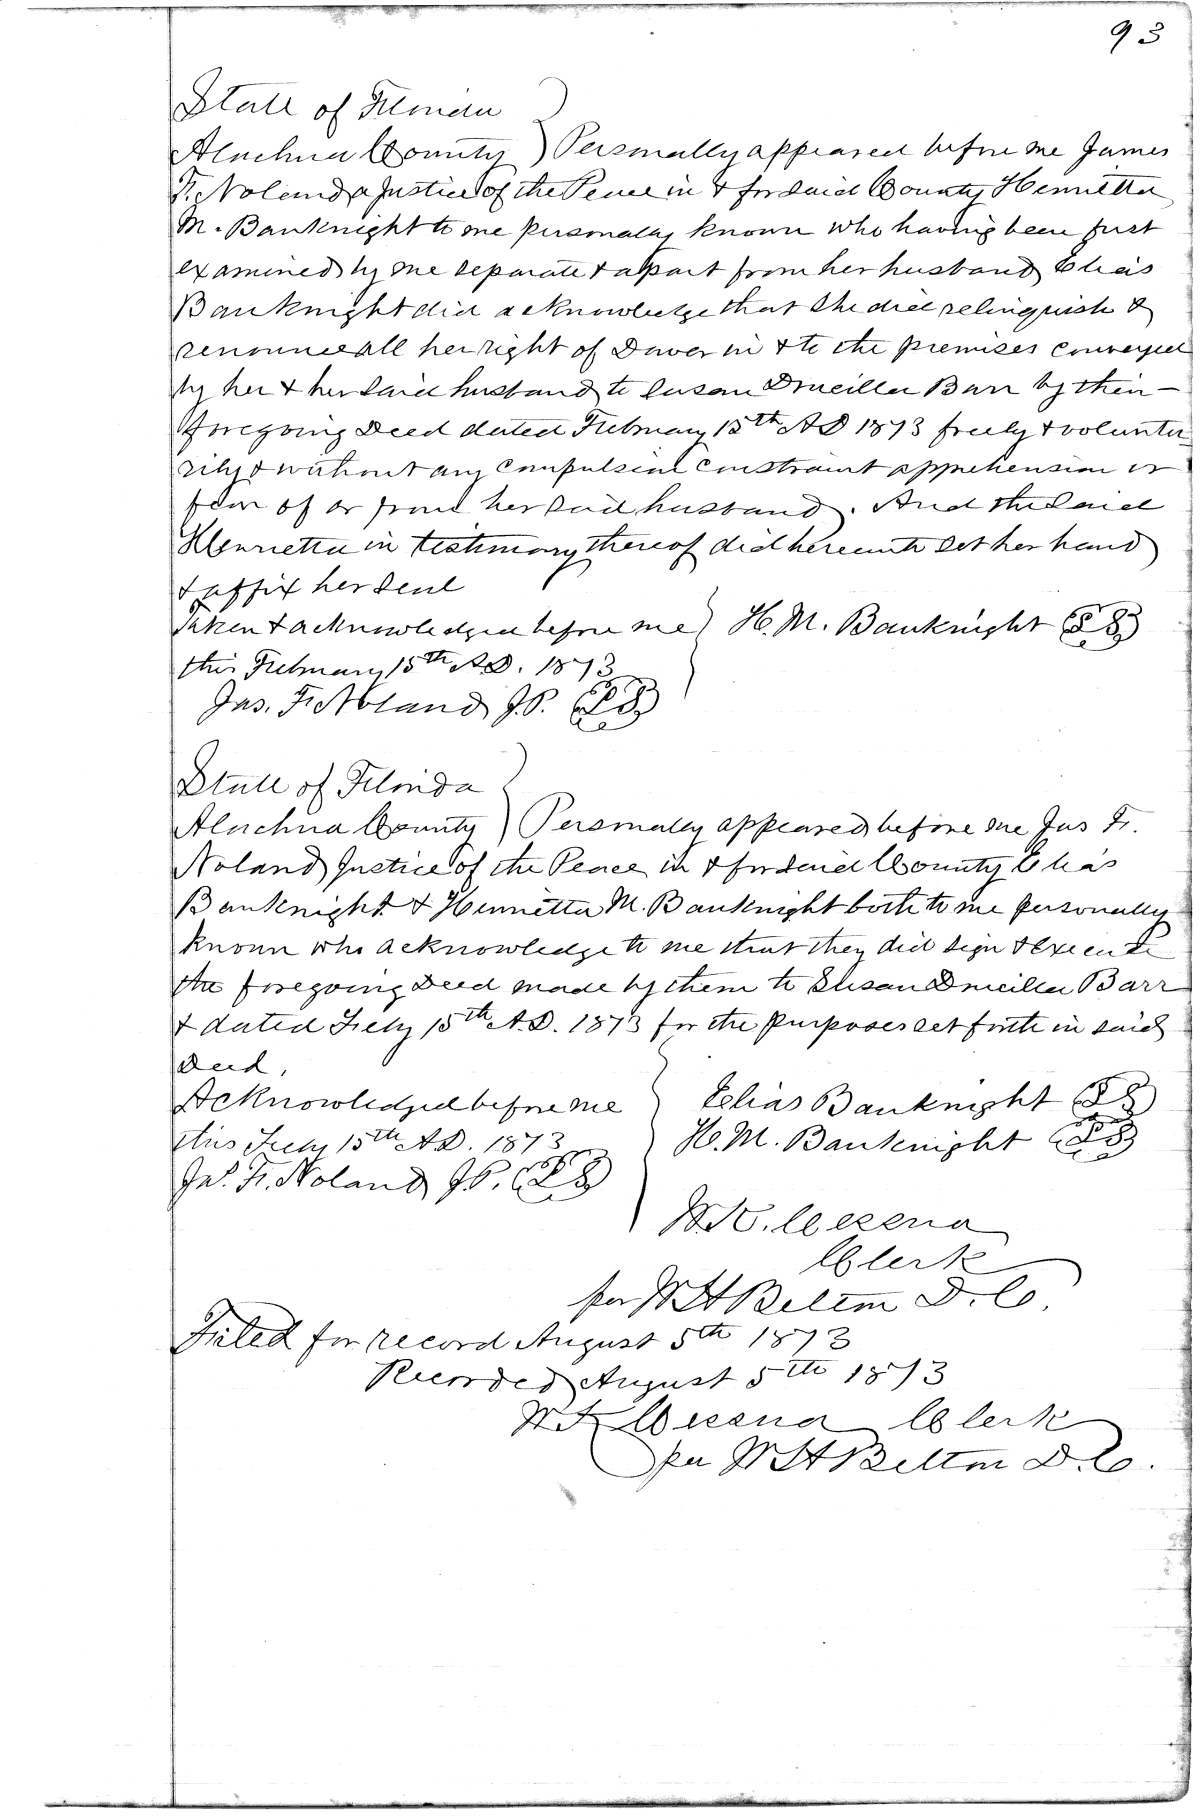 93
State of Florida
Alachua County } Personally appeared before me James
F. Noland a Justice of the Peace in & for said County Henrietta
M. Bauknight to me personally known who having been first
examined by me separate & apart from her husband Elias
Bauknight did acknowledge that she did relinquish &
renounce all her right of Dower in & to the premises conveyed
by her & her said husband to Susan Drucilla Barr by their
foregoing Deed dated February 15th AD 1873 freely & volunta-
rily & without any compulsion constraint apprehension or
fear of or from her said husband. And the said
Henrietta in testimony thereof did hereunto set her hand
& affix her seal
Taken & acknowledged before me } H. M. Bauknight (LS)
this February 15th A.D. 1873
Jas. F. Noland J.P. (LS)
State of Florida
Alachua County } Personally appeared before me Jas F.
Noland Justice of the Peace in & for said County Elias
Bauknight & Henrietta M. Bauknight both to me personally
known who acknowledge to me that they did sign & execute
the foregoing Deed made by them to Susan Drucilla Barr
& dated Feby 15th A.D. 1873 for the purposes set forth in said
Deed.
Acknowledged before me } Elias Bauknight (LS)
this Feby 15th A.D. 1873 H. M. Bauknight (LS)
Jas. F. Noland J.P. (LS)
W. K. Cessna
Clerk
per W H Belton D.C.
Filed for record August 5th 1873
Recorded August 5th 1873
W K Cessna Clerk
per W H Belton D.C.